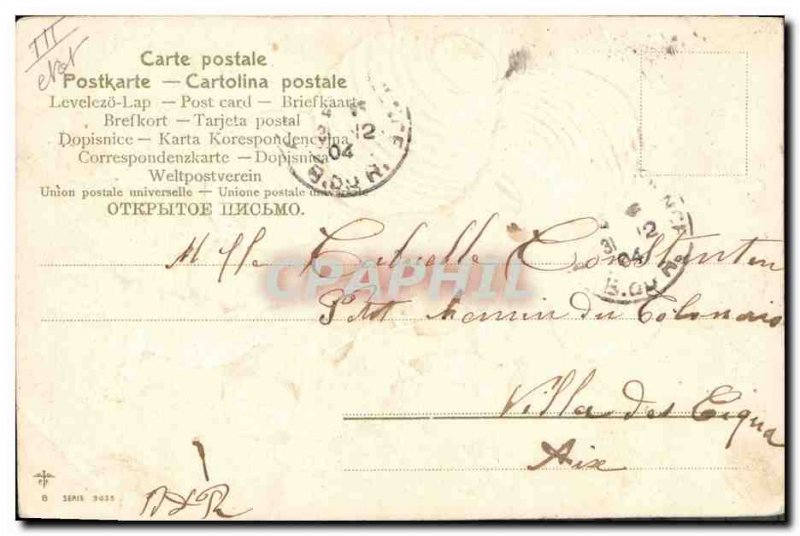 III
Carte postale
Postkarte — Cartolina postale
Levelezö-Lap — Post card — Briefkaart
Brefkort — Tarjeta postal
Dopisnice — Karta Korespondencyjna
Correspondenzkarte — Dopisnica
Weltpostverein
Union postale universelle — Unione postale universale
ОТКРЫТОЕ ПИСЬМО.
12
04
B. DU R.
12
04
B. DU R.
CPAPHIL
Mlle Constantin
Petit Chemin du Tholonais
Villa des Ciga
Aix
B SERIE 9035
BDR